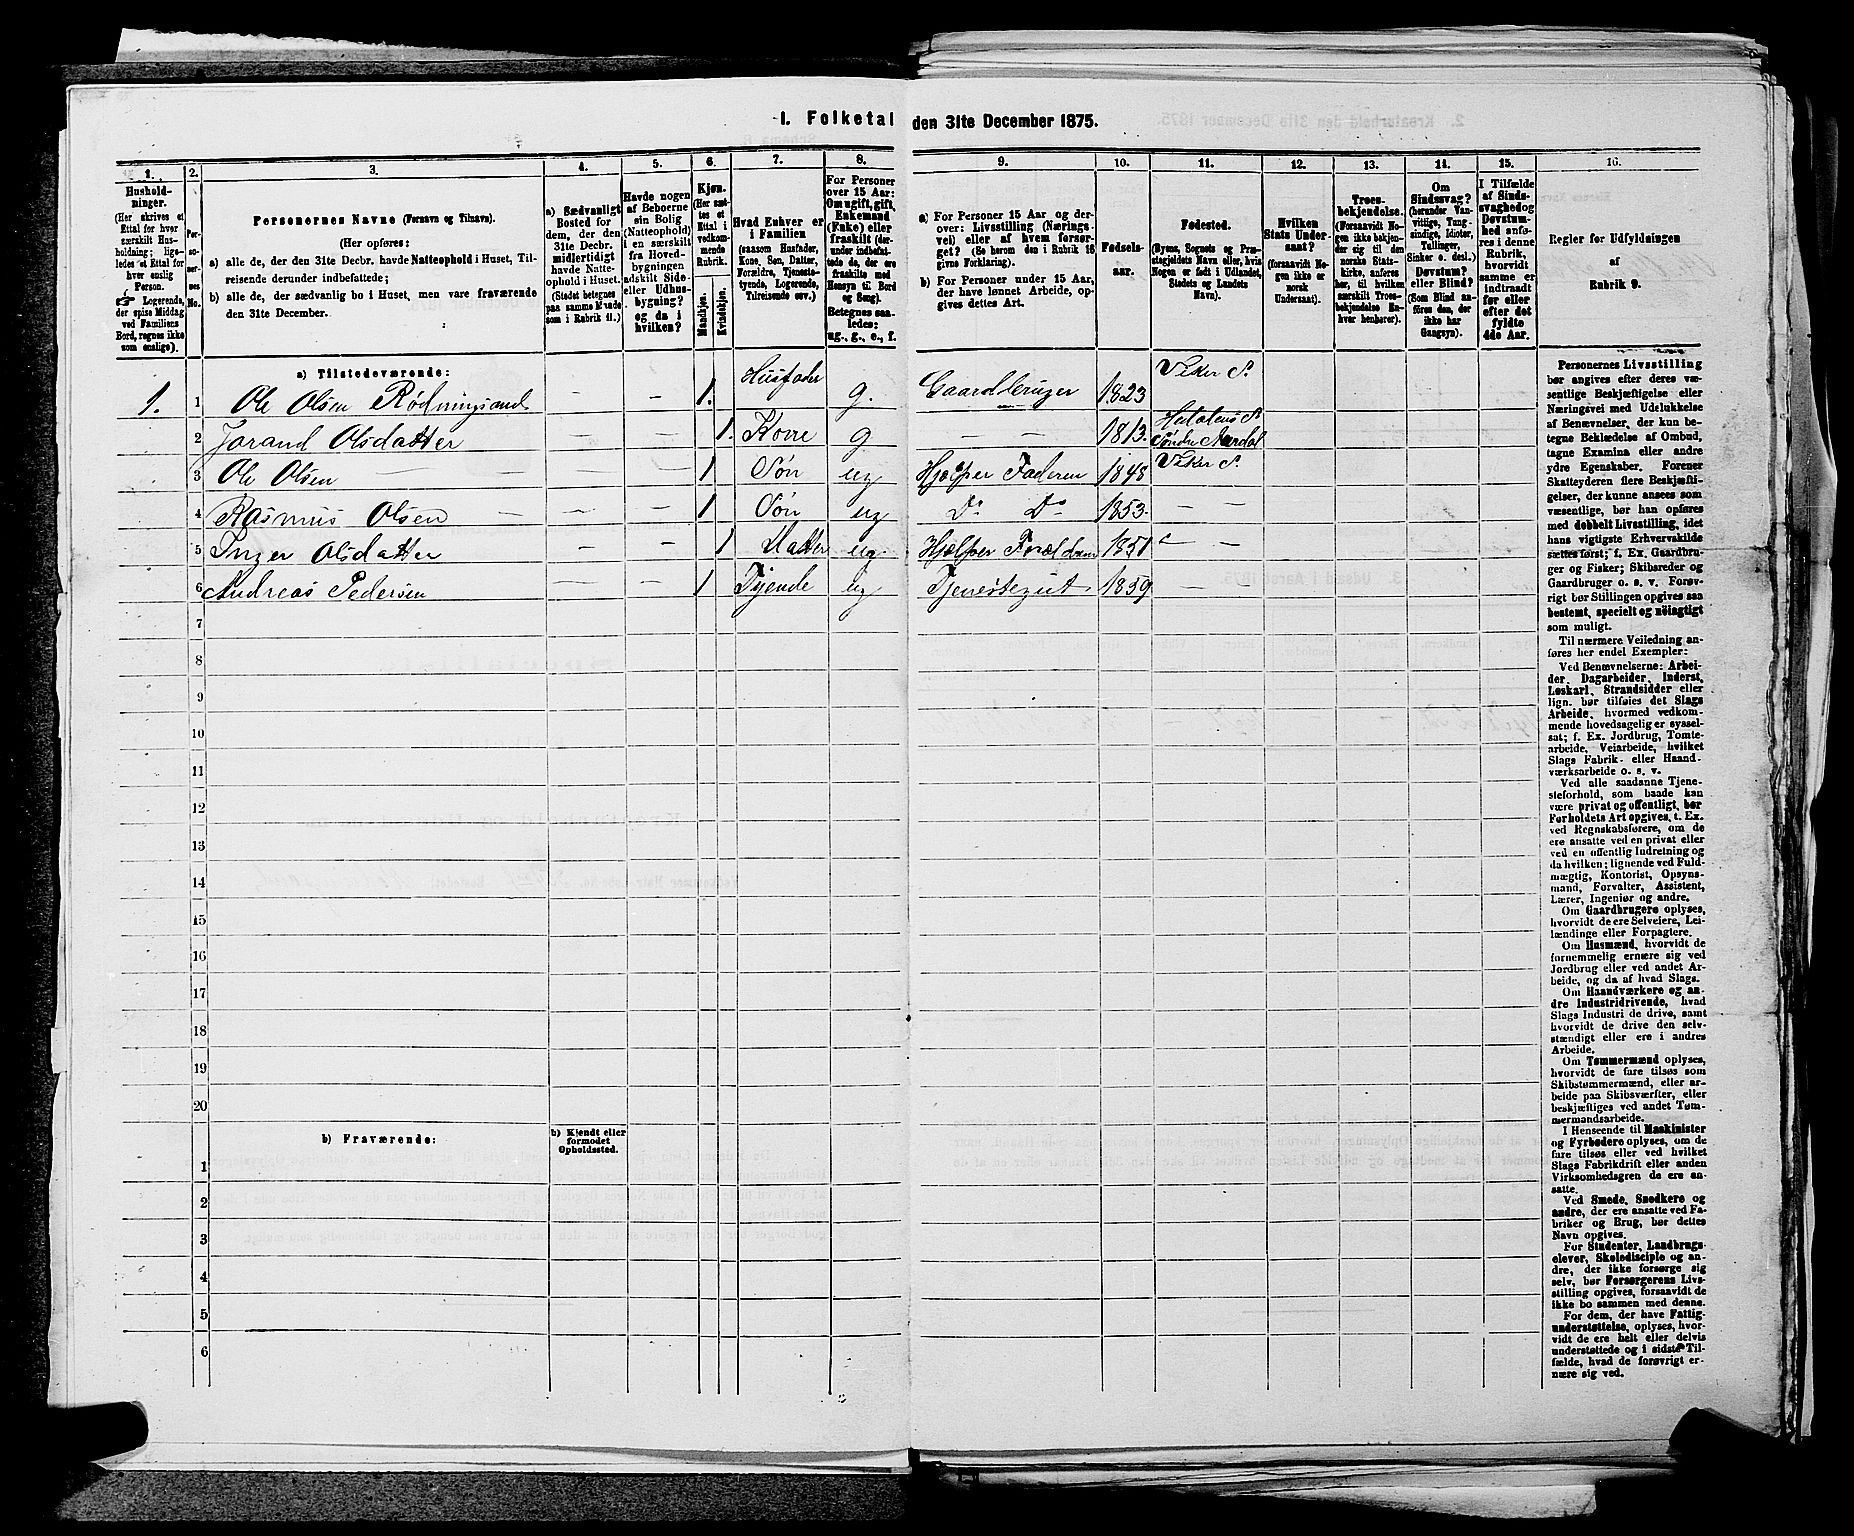 1. Folketal den 31te December 1875.
1. 2. 3. 4. 5. 6. 7. 8. 9. 10. 11. 12. 13. 14. 15. 16.
Hushold-
ninger.
(Her skrives et
Ettal for hver
særskilt Hus-
holdning; lige-
ledes et Ettal for
hver enslig
Person.
☞ Logerende,
der spise Middag
ved Familiens
Bord, regnes ikke
som enslige).
Per-
so-
ner-
nes
No.
Personernes Navne (Fornavn og Tilnavn).
(Her opføres:
a) alle de, der den 31te Decbr. havde Natteophold i Huset, Til-
reisende derunder indbefattede;
b) alle de, der sædvanlig bo i Huset, men vare fraværende
den 31te December.
a) Sædvanligt
Bosted for
dem, der den
31te Decbr.
midlertidigt
havde Natte-
ophold i Huset.
(Stedet betegnes
paa samme Maade
som i Rubrik 11.)
Havde nogen
af Beboerne
sin Bolig
(Natteophold)
i en særskilt
fra Hoved-
bygningen
adskilt Side-
eller Udhus-
bygning?
og da i
hvilken?
Kjøn.
(Her sæt-
tes et
Ettal i
vedkom-
mende
Rubrik.
Mandkjøn.
Kvindekjøn.
Hvad Enhver er
i Familien
(saasom Husfader,
Kone, Søn, Datter,
Forældre, Tjeneste-
tyende, Logerende,
Tilreisende osv.)
For Personer
over 15 Aar:
Om ugift, gift,
Enkemand
(Enke) eller
fraskilt (der-
under indbefat-
tede de, der ere
fraskilte med
Hensyn til Bord
og Seng).
Betegnes saa-
ledes:
ug., g., e., f.
a) For Personer 15 Aar og der-
over: Livsstilling (Nærings-
vei) eller af hvem forsør-
get? (Se herom den i Rubrik 16
givne Forklaring).
b) For Personer under 15 Aar,
der have lønnet Arbeide, op-
gives dettes Art.
Fødsels-
aar.
Fødested.
(Byens, Sognets og Præ-
stegjeldets Navn eller, hvis
Nogen er født i Udlandet,
Stedets og Landets
Navn).
Hvilken
Stats Under-
saat?
(forsaavidt No-
gen ikke er
norsk
Undersaat).
Troes-
bekjendelse.
(Forsaavidt No-
gen ikke bekjen-
der sig til den
norske Stats-
kirke, anføres
her, til hvilken
særskilt Troes-
bekjendelse En-
hver henhører).
Om
Sindssvag?
(herunder Van-
vittige, Tung-
sindige, Idioter,
Tullinger,
Sinker o. desl.)
Døvstum?
eller Blind?
(Som Blind an-
føres den, der
ikke har
Gangsyn).
I Tilfælde
af Sinds-
svaghed og
Døvstum-
hed anfø-
res i denne
Rubrik,
hvorvidt
samme er
indtraadt
før eller
efter det
fyldte
4de Aar.
Regler for Udfyldningen
af
Rubrik 9.
a) Tilstedeværende:
1. 1 Ole Olsen Rødningsand — — 1. Husfader g. Gaardbruger 1823 Viker S.
2 Jorand Olsdatter — — 1. Kone g — — 1813. Søndre Aurdal
3 Ole Olsen — — 1 Søn ug Hjælper Faderen 1848 Viker S.
4 Rasmus Olsen — — 1 Søn ug Do Do 1853. — —
5 Inger Olsdatter — — 1 Datter ug. Hjælper Forældrene 1851 — —
6 Andreas Pedersen — — 1 Tjende ug Tjenestegut 1859 — —
7
8
9
10
11
12
13
14
15
16
17
18
19
20
b) Fraværende:
b) Kjendt eller
formodet
Opholdssted.
1
2
3
4
5
6
Personernes Livsstilling
bør angives efter deres væ-
sentlige Beskjæftigelse eller
Næringsvei med Udelukkelse
af Benævnelser, der kun be-
tegne Beklædelse af Ombud,
tagne Examina eller andre
ydre Egenskaber. Forener
Skatteyderen flere Beskjæfti-
gelser, der kunne ansees som
væsentlige, bør han opføres
med dobbelt Livsstilling, idet
hans vigtigste Erhvervskilde
sættes først; f. Ex. Gaardbru-
ger og Fisker; Skibsreder og
Gaardbruger o. s. v. Forøv-
rigt bør Stillingen opgives saa
bestemt, specielt og nøiagtigt
som muligt.
Til nærmere Veiledning an-
føres her endel Exempler:
Ved Benævnelserne: Arbei-
der, Dagarbeider, Inderst,
Løskarl, Strandsidder eller
lign. bør tilføies det Slags
Arbeide, hvormed vedkom-
mende hovedsagelig er syssel-
sat; f. Ex. Jordbrug, Tomte-
arbeide, Veiarbeide, hvilket
Slags Fabrik- eller Haand-
værksarbeide o. s. v.
Ved alle saadanne Tjene-
steforhold, som baade kan
være privat og offentligt, bør
Forholdets Art opgives, t. Ex.
ved Regnskabsførere, om de
ere ansatte ved en privat eller
ved en offentlig Indretning og
da hvilken; lignende ved Fuld-
mægtig, Kontorist, Opsyns-
mand, Forvalter, Assistent,
Lærer, Ingeniør og andre.
Om Gaardbrugere oplyses,
hvorvidt de ere Selveiere, Lei-
lændinge eller Forpagtere.
Om Husmænd, hvorvidt de
fornemmelig ernære sig ved
Jordbrug eller ved andet Ar-
beide, og da af hvad Slags.
Om Haandværkere og an-
dre Industridrivende, hvad
Slags Industri de drive, samt
hvorvidt de drive den selv-
stændigt eller ere i andres
Arbeide.
Om Tømmermænd oplyses,
hvorvidt de fare tilsøs som
Skibstømmermænd, eller ar-
beide paa Skibsværfter, eller
beskjæftiges ved andet Tøm-
mermandsarbeide.
I Henseende til Maskinister
og Fyrbødere oplyses, om de
fare tilsøs eller ved hvilket
Slags Fabrikdrift eller anden
Virksomhedsgren de ere an-
satte.
Ved Smede, Snedkere og
andre, der ere ansatte ved Fa-
briker og Brug, bør dettes
Navn opgives.
For Studenter, Landbrugs-
elever, Skoledisciple og an-
dre, der ikke forsørge sig
selv, bør Forsørgerens Livs-
stilling opgives, forsaavidt de
ikke bo sammen med denne.
For dem, der have Fattig-
understøttelse, oplyses, hvor-
vidt de ere helt eller delvis
understøttede og i sidste Til-
fælde, hvad de forøvrigt er-
nære sig ved.